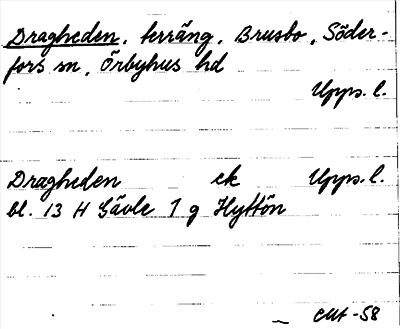 Dragheden, terräng, Brusbo, Söder-
fors sn, Örbyhus hd
Upps. l.
Dragheden ek Upps. l.
bl. 13 H Gävle 7 g Hyttön
-58